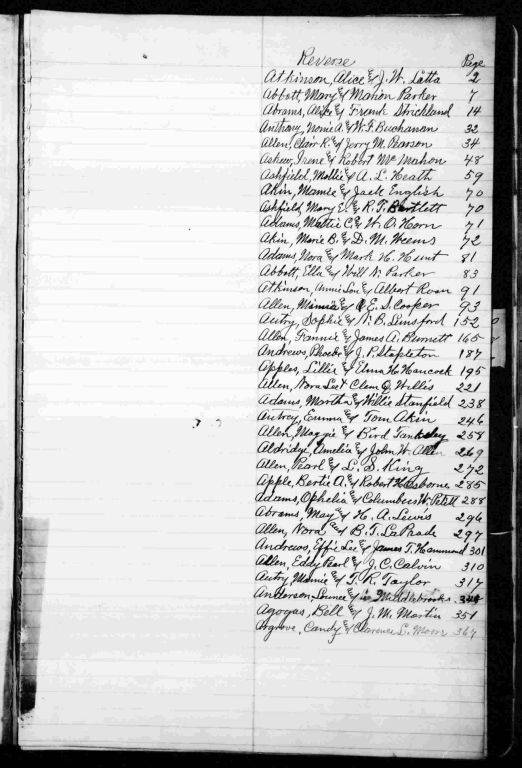 Reverse Page
Atkinson, Alice & J. W. Latta 2
Abbott, Mary & Mahon Parker 7
Abrams, Alice & Frank Strickland 14
Anthony, Nonie A. & W. F. Buchanan 32
Allen, Clair R. & Jerry M. Pearson 34
Askew, Irene & Robert McMahon 48
Ashfield, Mollie & A. L. Heath 59
Akin, Mamie & Jack English 70
Ashfield, Mary E. & R. T. Bartlett 70
Adams, Mattie C. & W. O. Horn 71
Akin, Marie B. & D. M. Weems 72
Adams, Nora & Mark H. Hunt 81
Abbott, Ella & Will N. Parker 83
Atkinson, Annie Lou & Albert Roan 91
Allen, Minnie & E. S. Cooper 93
Autry, Sophie & N. B. Lunsford 152
Allen, Fannie & James A. Burnett 165
Andrews, Phoebe & J. P. Stapleton 187
Apples, Lillie & Elma H. Hancock 195
Allen, Nora Lee & Clem O. Willis 221
Adams, Martha & Willie Stanfield 238
Autrey, Emma & Tom Akin 246
Allen, Maggie & Bird Tanksley 258
Aldridge, Amelia & John W. Allen 269
Allen, Pearl & L. S. King 272
Apple, Bertie A. & Robert H. Osborne 285
Adams, Ophelia & Columbus W. Petitt 288
Abrams, May and H. A. Lewis 296
Allen, Nora and B. T. LaPrade 297
Andrews, Effie Lee & James T. Hammond 301
Allen, Eddy Pearl & J. C. Calvin 310
Autry, Mamie & T. R. Taylor 317
Anderson, & Middlebrooks
Agogas, Bell & J. M. Martin 351
Argrove, Candy & Clarence L. Moon 367